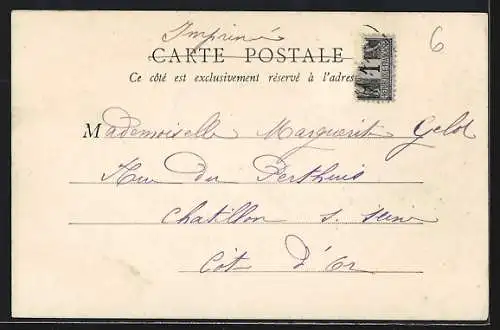 Imprimé
6
CARTE POSTALE
Ce côté est exclusivement réservé à l'adres
1
Mademoiselle Marguerit Gelot
Rue du Perthuis
Chatillon s. Seine
Cot d'Or